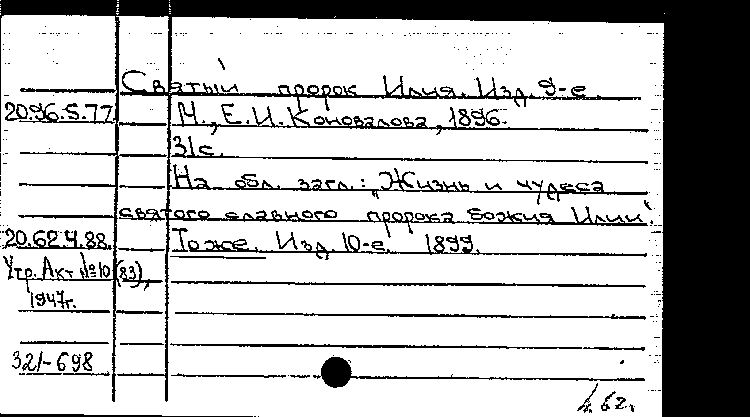 Святый пророк Илия. Изд. 9-е.
20.96.5.77. М., Е.И. Коновалова, 1896.
31с.
На обл. загл.: „Жизнь и чудеса
святого славного пророка божия Илии".
20.62.4.88. Тоже. Изд. 10-е. 1899.
Утр. Акт №10 (83),
1947г.
321-698
62г.